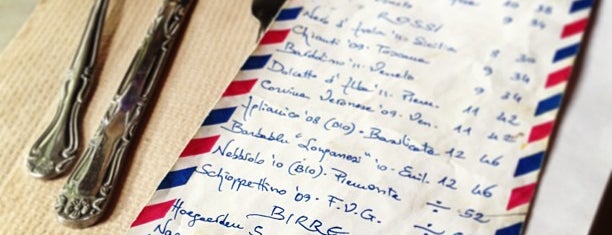 ROSSI 8 34
Nero d'Avola '11 Sicilia 8 30
Chianti '09 - Toscana 9 34
Bardolino '11 - Veneto 9 34
Dolcetto d'Alba '11 - Piem. 11 42
Corvina Veronese '09 - Ven. 11 42
Aglianico '08 (BIO) - Basilicata 12 46
Barbablu "Longanesi" '10 - Emil. 12 46
Nebbiolo '10 (BIO) - Piemonte ÷ 52
Schioppettino '09 - F.V.G. ÷
BIRRE
Hoegaarden